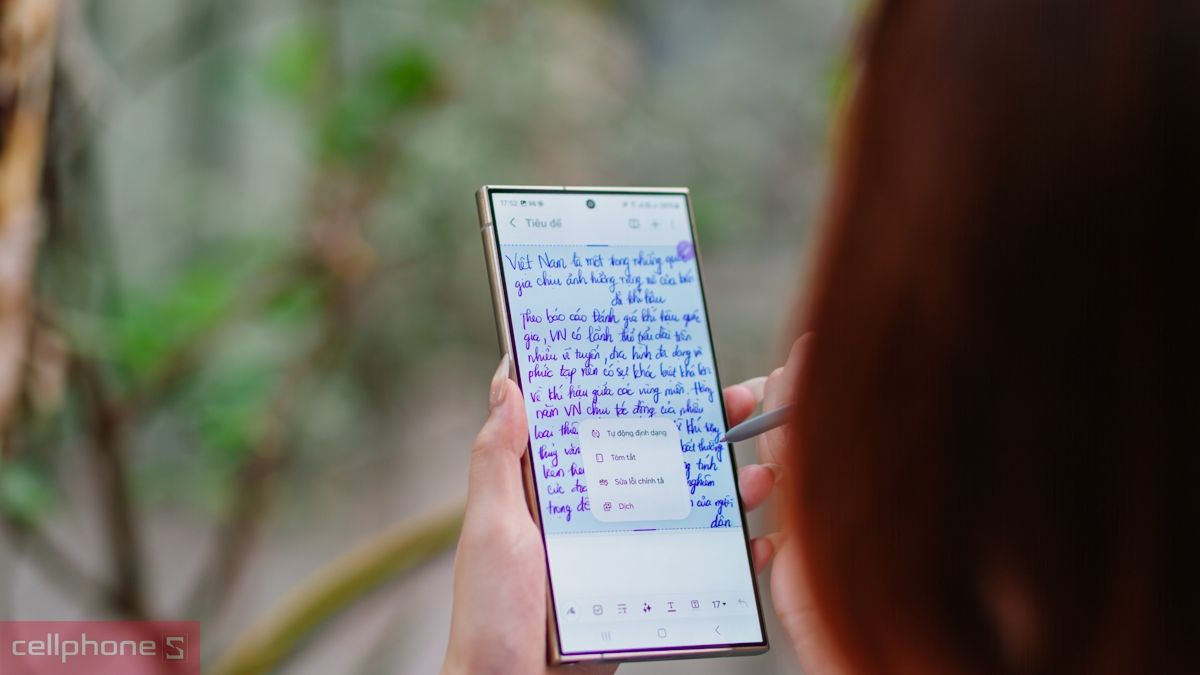 17:52
Tiêu đề
Việt Nam là một trong những quốc
gia chịu ảnh hưởng nặng nề của biến
đổi khí hậu
Theo báo cáo Đánh giá khí hậu quốc
gia, VN có lãnh thổ trải dài trên
nhiều vĩ tuyến, địa hình đa dạng và
phức tạp nên có sự khác biệt khá lớn
về khí hậu giữa các vùng miền. Hàng
năm VN chịu tác động của nhiều
loại thiê
khí tượng
thuỷ văn
bất thường
kèm
tính
cực đo
nghiêm
trọng đế
của người
dân
Tự động định dạng
Tóm tắt
Sửa lỗi chính tả
Dịch
17
cellphoneS